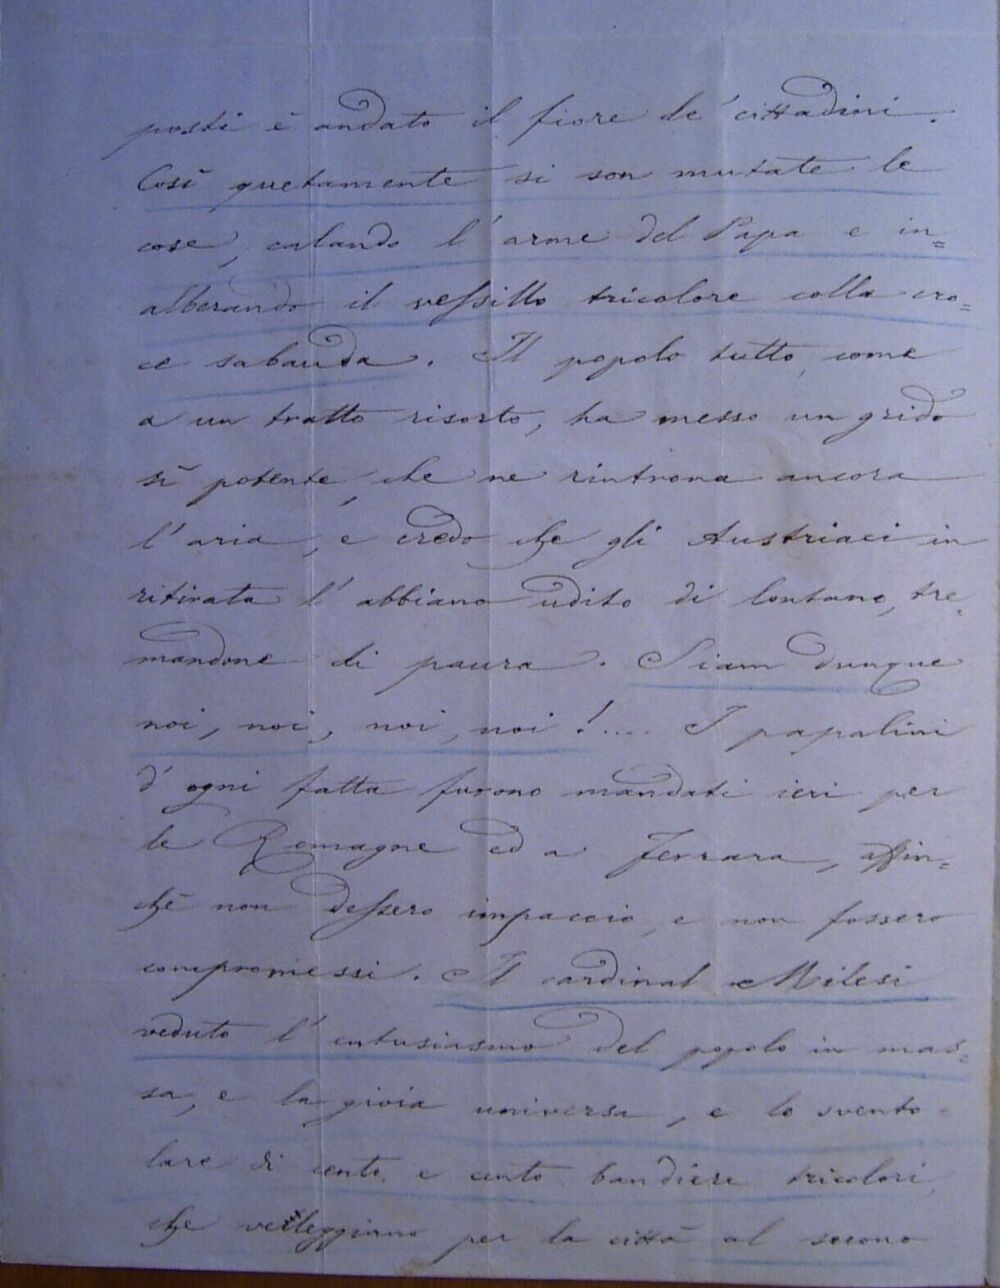 posti è andato il fiore de' cittadini.
Così quetamente si son mutate le
cose, calando l'arme del Papa e in=
alberando il vessillo tricolore colla cro=
ce sabauda. Il popolo tutto, come
a un tratto risorto, ha messo un grido
sì potente, che ne rintrona ancora
l'aria, e credo che gli Austriaci in
ritirata l'abbiano udito di lontano, tre=
mandone di paura. Siam dunque
noi, noi, noi, noi!.... I papalini
d'ogni fatta furono mandati ieri per
le Romagne ed a Ferrara, affin=
chè non dessero impaccio, e non fossero
compromessi. Il cardinal Milesi
veduto l'entusiasmo del popolo in mas=
sa, e la gioia universa, e lo svento=
lare di cento e cento bandiere tricolori,
che velleggiano per la città al sereno